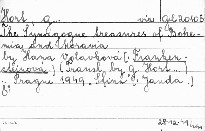 Hort, G... vis Gd 20405
The Synagogue treasures of Bohe-
mia and Moravia
by Hana Volavková [: Franken-
[Transl. by G. Hort...]
Prague 1949. Sfinx [: Janda.]
8°
28.12.